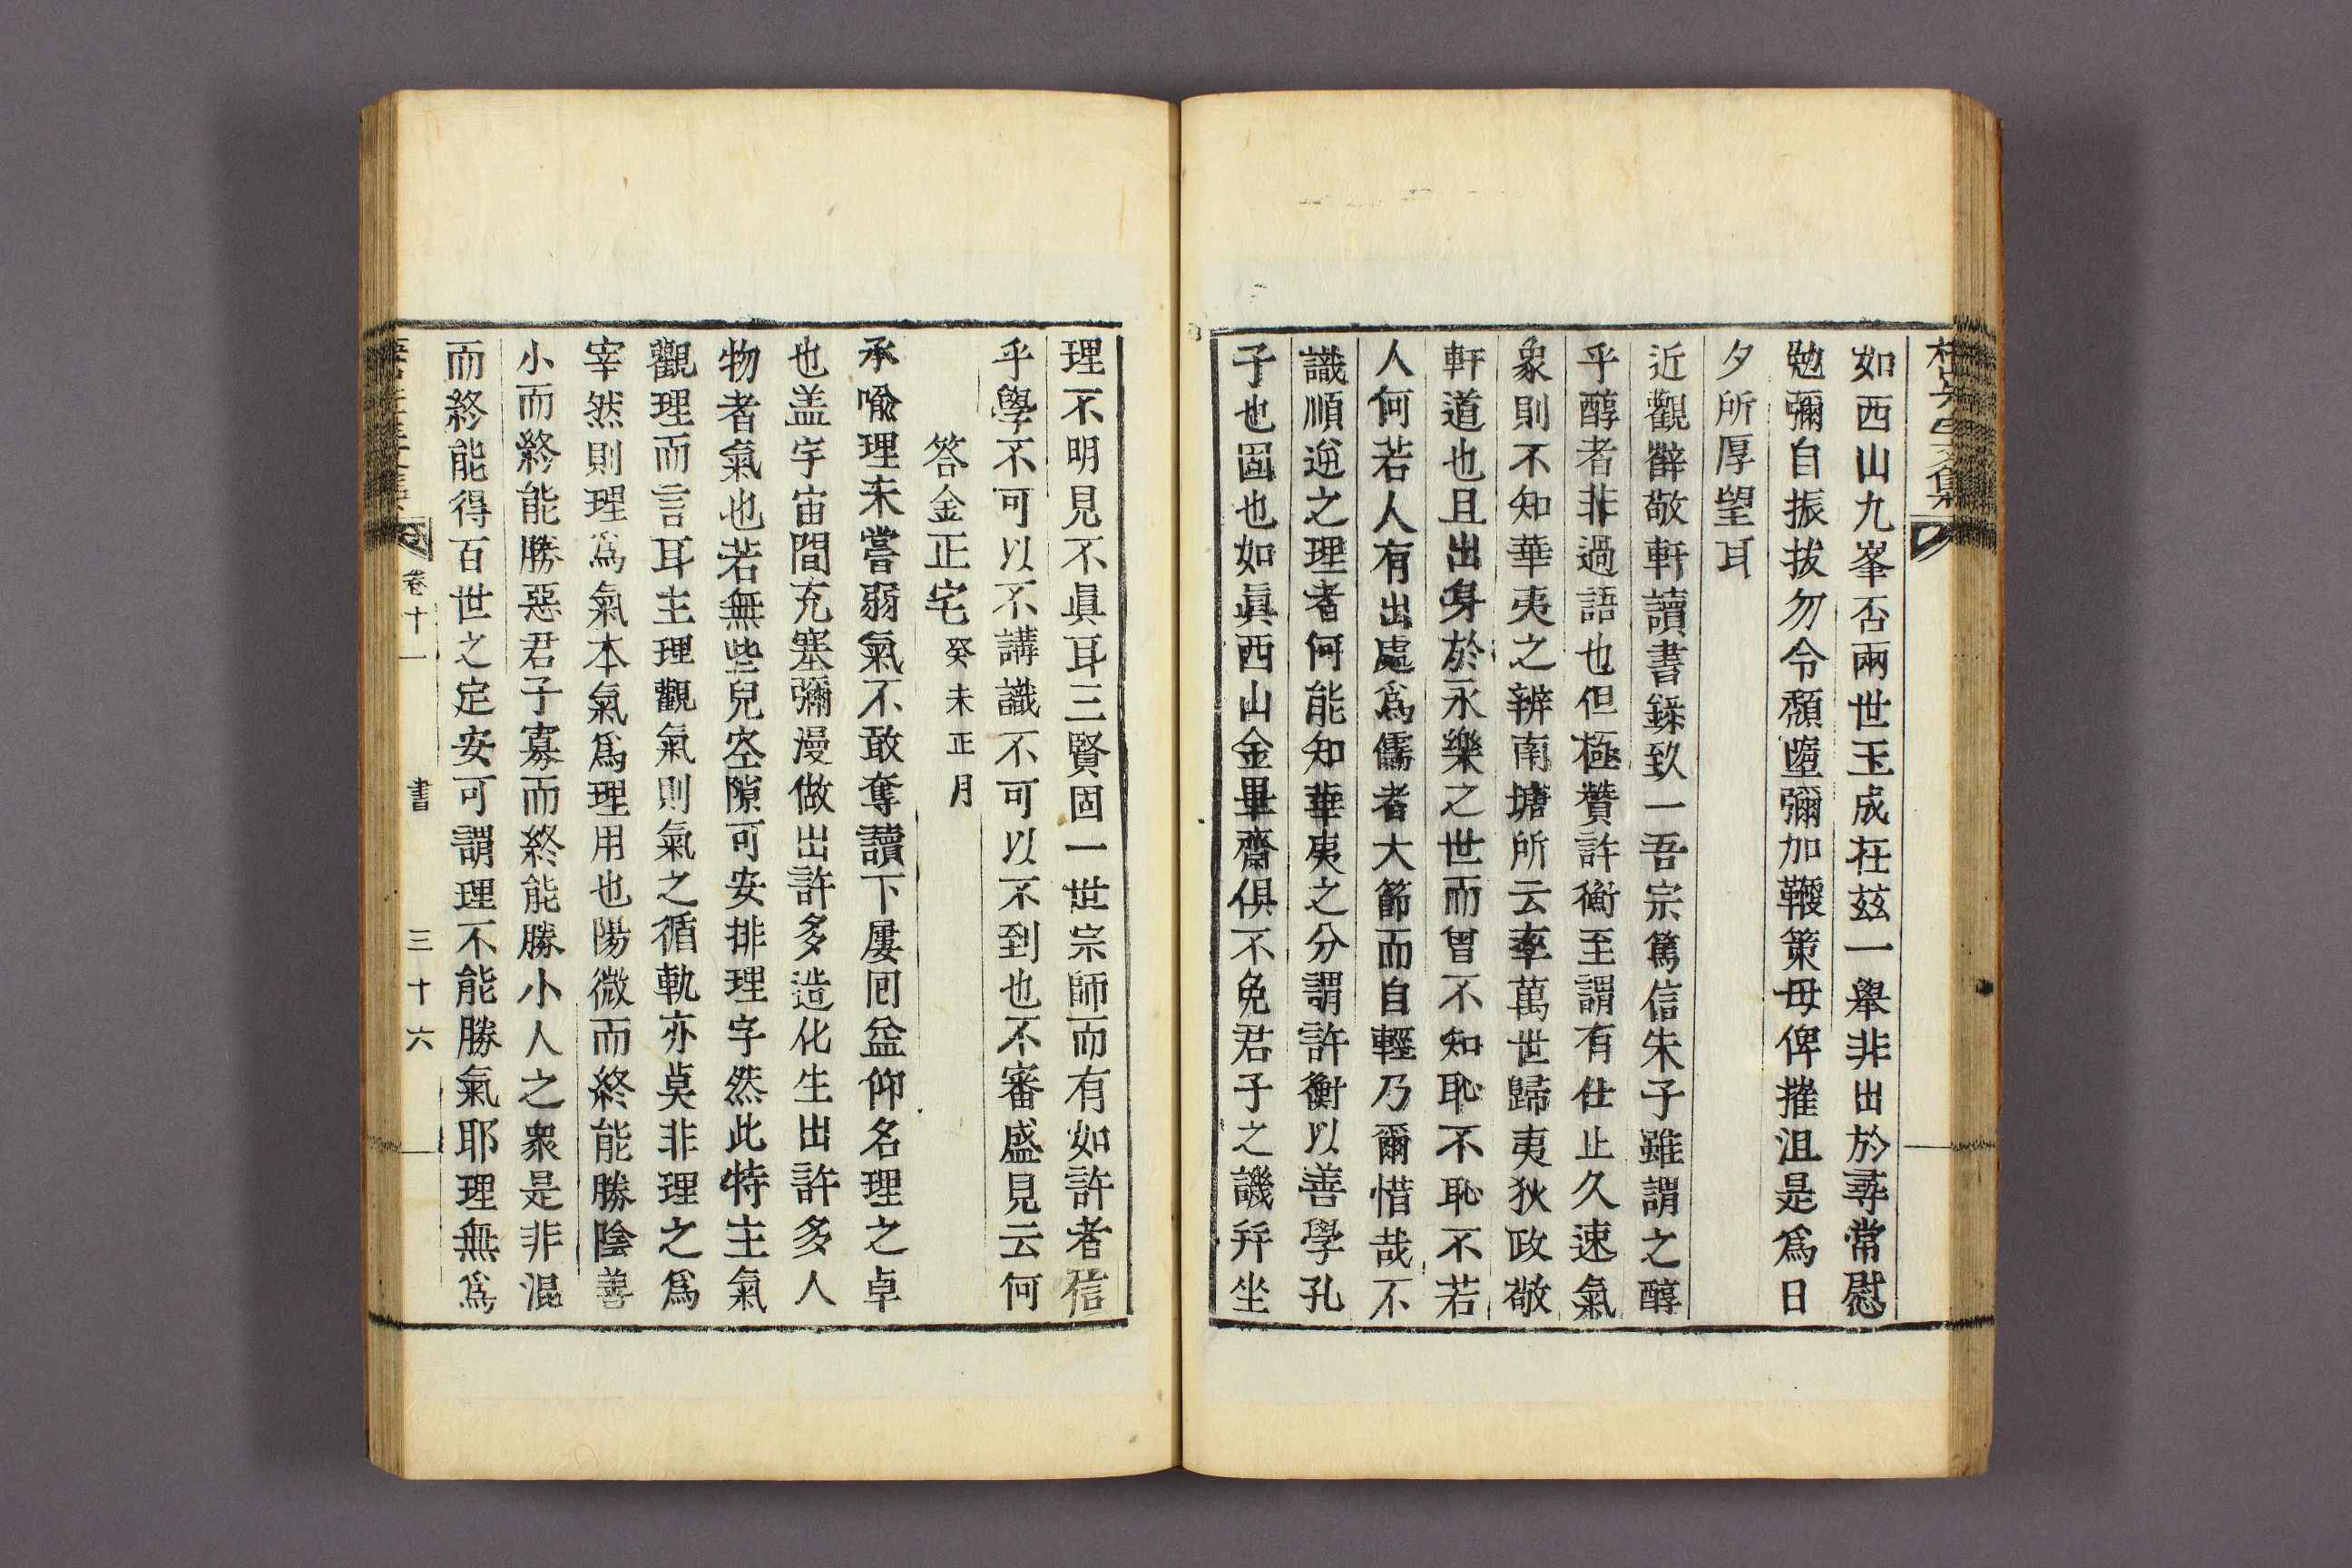 如西山九峯否兩世玉成在玆一舉非出於尋常慰
勉彌自振拔勿令頹墮彌加鞭策毋俾摧沮是爲日
夕所厚望耳
近觀辥敬軒讀書錄致一吾宗篤信朱子雖謂之醇
乎醇者非過語也但極贊許衡至謂有仕止久速氣
象則不知華夷之辨南塘所云率萬世歸夷狄政敬
軒道也且出身於永樂之世而曾不知恥不恥不若
人何若人有出處爲儒者大節而自輕乃爾惜哉不
識順逆之理者何能知華夷之分謂許衡以善學孔
子也固也如眞西山金畢齋俱不免君子之譏幷坐
理不明見不眞耳三賢固一世宗師而有如許者信
乎學不可以不講識不可以不到也不審盛見云何
答金正宅 癸未正月
承喩理未嘗弱氣不敢奪讀下屢回益仰名理之卓
也盖宇宙間充塞彌漫做出許多造化生出許多人
物者氣也若無些兒空隙可安排理字然此特主氣
觀理而言耳主理觀氣則氣之循軌亦莫非理之爲
宰然則理爲氣本氣爲理用也陽微而終能勝陰善
小而終能勝惡君子寡而終能勝小人之衆是非混
而終能得百世之定安可謂理不能勝氣耶理無爲
卷十一 書 三十六